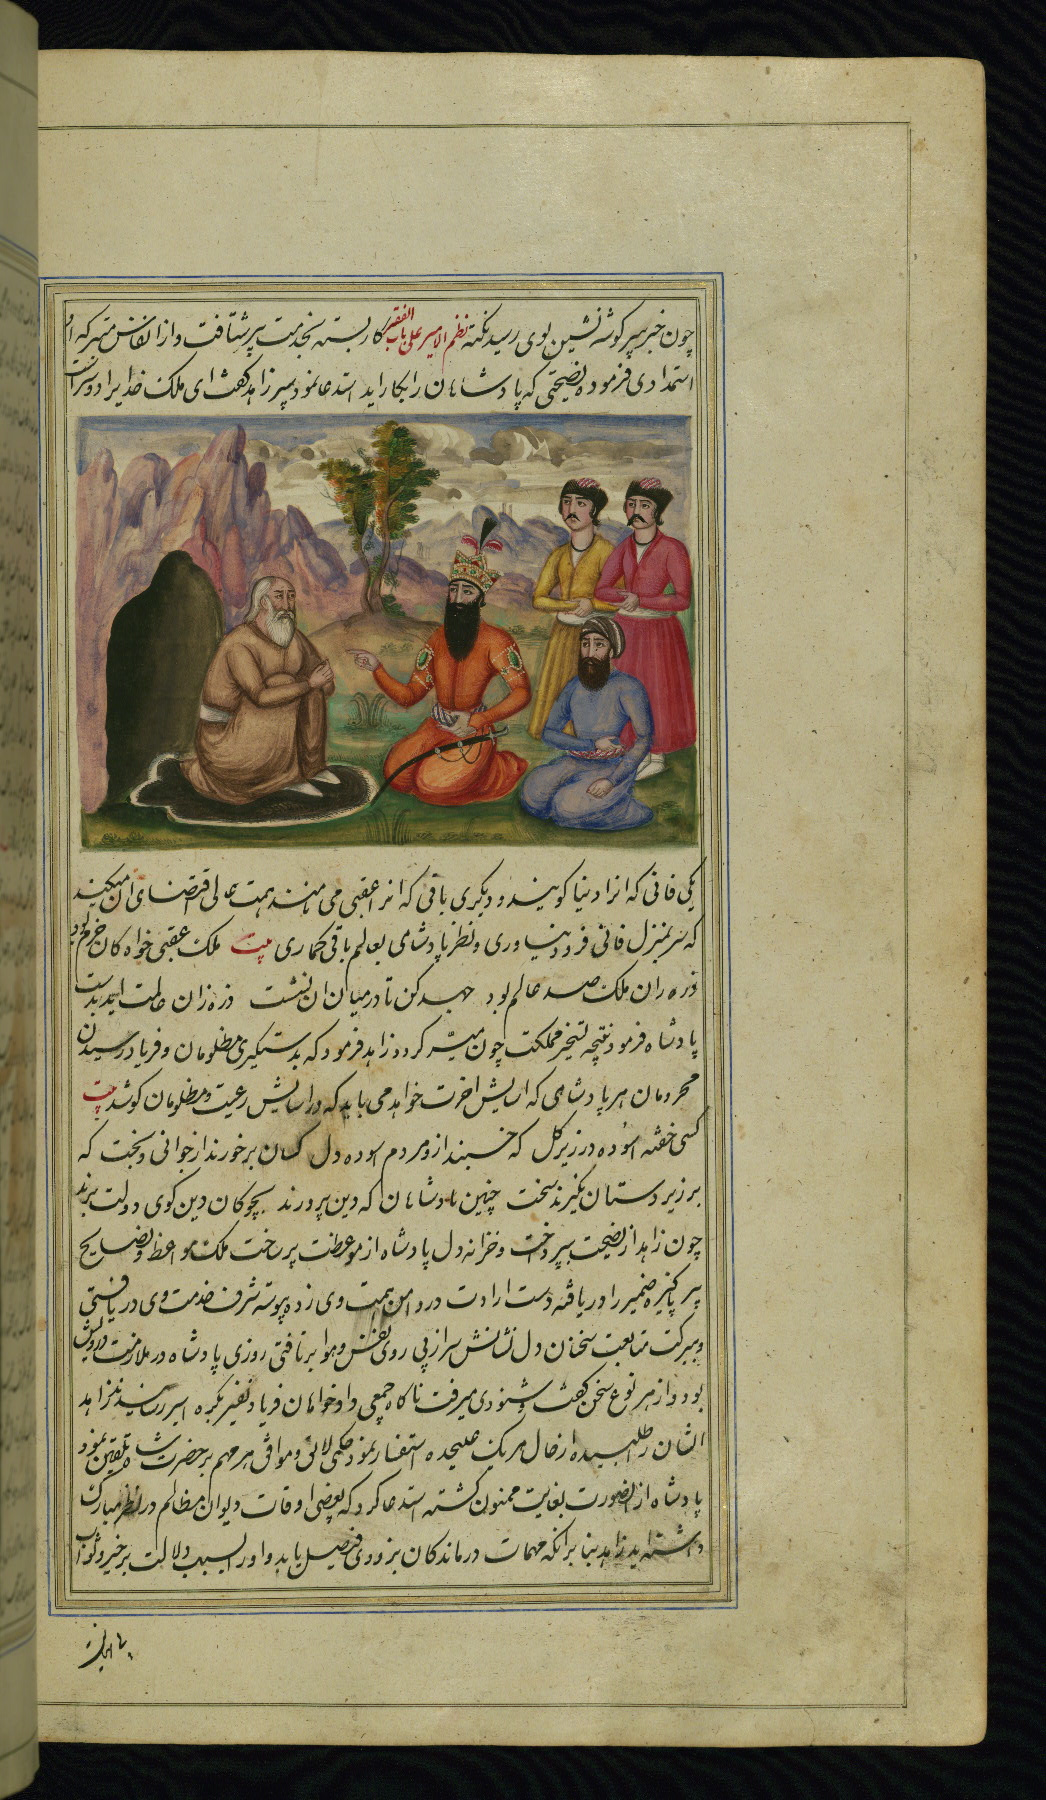 چون خبر پیر کوشه نشین بوی رسید نکته نظم الامیر علی باب الفقیر کار بسته بخدمت پیر شتافت و از انفاس متبرکه او
استمدادی فرموده نصیحتی که پادشاهان را بکار اید استدعا نمود پیر زاهد کفت ای ملک خدایرا دو سرا است
یکی فانی که انرا دنیا کویند و دیکری باقی که انرا عقبی می نهند همت عالی اقتضای ان میکند
که سر بمنزل فانی فرود نیاوری و نظر پادشاهی بعالم باقی کماری بیت ملک عقبی خواه کان خرم بود
ذره زان ملک صد عالم بود جهد کن تا در میان ان نشست ذره زان عالمت اید بدست
پادشاه فرمود نتیجه تسخیر مملکت چون میسر کردد زاهد فرمود که بدستکیری مظلومان و فریاد رسیدن
محرومان هر پادشاهی که اسایش اخرت خواهد می باید که در اسایش رعیت و مظلومان کوشد بیت
کسی خفته اسوده در زیر کل که خسبند ازو مردم اسوده دل کسان برخورند از جوانی و بخت که
بر زیردستان نکیرند سخت چنین پادشاهان که دین پرورند بچوکان دین کوی دولت برند
چون زاهد از نصیحت بپرداخت و خزانه دل پادشاه از موعظت پر ساخت ملک مواعظ و نصایح
پیر پاکیزه ضمیر را دریافته دست ارادت در دامن همت وی زده پیوسته شرف خدمت وی دریافتی
و ببرکت متابعت سخنان دل نشانش سر از پی روی نفس و هوا برتافتی روزی پادشاه در ملازمت درویش
بود و از هر نوع سخن کفت و شنودی میرفت ناکاه جمعی دادخواهان فریاد و نفیر بکره اسیر رسانیدند زاهد
ایشان را طلبیده از حال هر یک علیحده استفسار نمود حکمی لایق و موافق هر مهم بر حضرت شاه تلقین نمود
پادشاه از انصورت بغایت ممنون کشته استدعا کرد که بعضی اوقات دیوان مظالم در نظر مبارک
داشته اید زاهد بنا بر انکه مهمات درماندکان بزودی فیصل یابد و او را بسبب دلالت بر خیر و ثواب